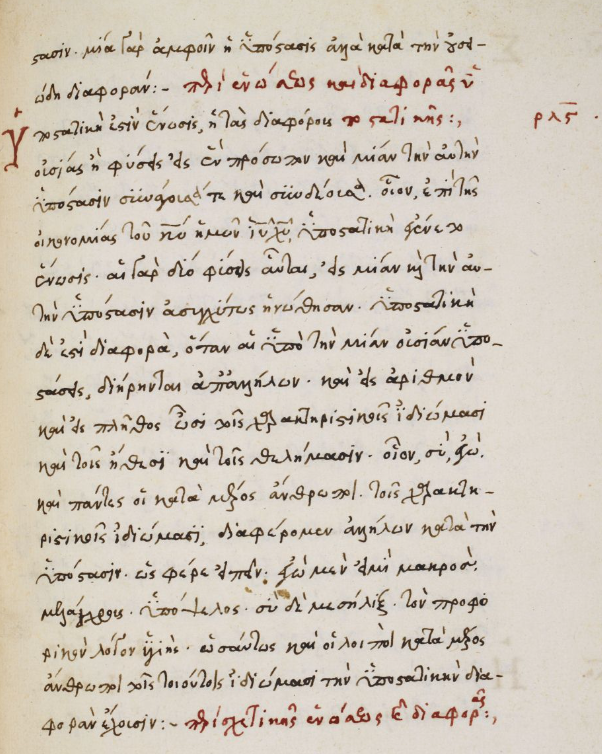 στασιν· μία γὰρ ἀμφοῖν ἡ ὑπόστασις ἀλλὰ κατὰ τὴν οὐσι-
ώδη διαφοράν:- περὶ ἑνώσεως καὶ διαφορᾶς ὑ
Ὑποστατική ἐστιν ἕνωσις, ἡ τὰς διαφόρους ποστατικῆς:, ρλς ·
οὐσίας ἢ φύσεις εἰς ἓν πρόσωπον καὶ μίαν τὴν αὐτὴν
ὑπόστασιν συνάγουσά τε καὶ συνδέουσα. οἷον, ἐπὶ τῆς
οἰκονομίας τοῦ κυ ἡμῶν ιυ χυ, ὑποστατικὴ γέγονε
ἕνωσις· αἱ γὰρ δύο φύσεις αὗται, εἰς μίαν καὶ τὴν αὐ-
τὴν ὑπόστασιν ἀσυγχύτως ἡνώθησαν· ὑποστατικὴ
δέ ἐστι διαφορὰ, ὅταν αἱ ὑπὸ τὴν μίαν οὐσίαν ὑπο-
στάσεις, διῄρηνται ἀπ' ἀλλήλων· καὶ εἰς ἀριθμὸν
καὶ εἰς πλῆθος ὦσι τοῖς χαρακτηριστικοῖς ἰδιώμασι
καὶ τοῖς ἤθεσι καὶ τοῖς θελήμασιν· οἷον, σὺ, ἐγὼ.
καὶ πάντες οἱ κατὰ μέρος ἄνθρωποι. τοῖς χαρακτη-
ριστικοῖς ἰδιώμασι, διαφέρομεν ἀλλήλων κατὰ τὴν
ὑπόστασιν· ὡς φέρε εἰπεῖν· ἐγὼ μὲν εἰμὶ μακρὸς.
μελάγχρους. ὑπόψελος· σὺ δὲ μεσῆλιξ· τὸν προφο
ρικὸν λόγον ὑγιής· ὡσαύτως καὶ οἱ λοιποὶ κατὰ μέρος
ἄνθρωποι τοῖς τοιούτοις ἰδιώμασι τὴν ὑποστατικὴν δια-
φορὰν ἔχουσιν:- περὶ σχετικῆς ἑνώσεως καὶ διαφορᾶς:,